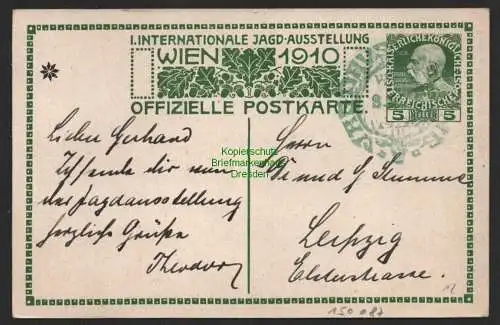 I. INTERNATIONALE JAGD-AUSSTELLUNG
WIEN 1910
OFFIZIELLE POSTKARTE
KAISERLICHE KÖNIGLICHE
ÖSTERREICHISCHE
5 5
Kopierschutz
Briefmarkenhaus
Dresden
Lieber Gerhard
Ich sende dir von
der Jagdausstellung
herzliche Grüße
Theodor
Herrn
Leipzig
Elsterstrasse.
150 087